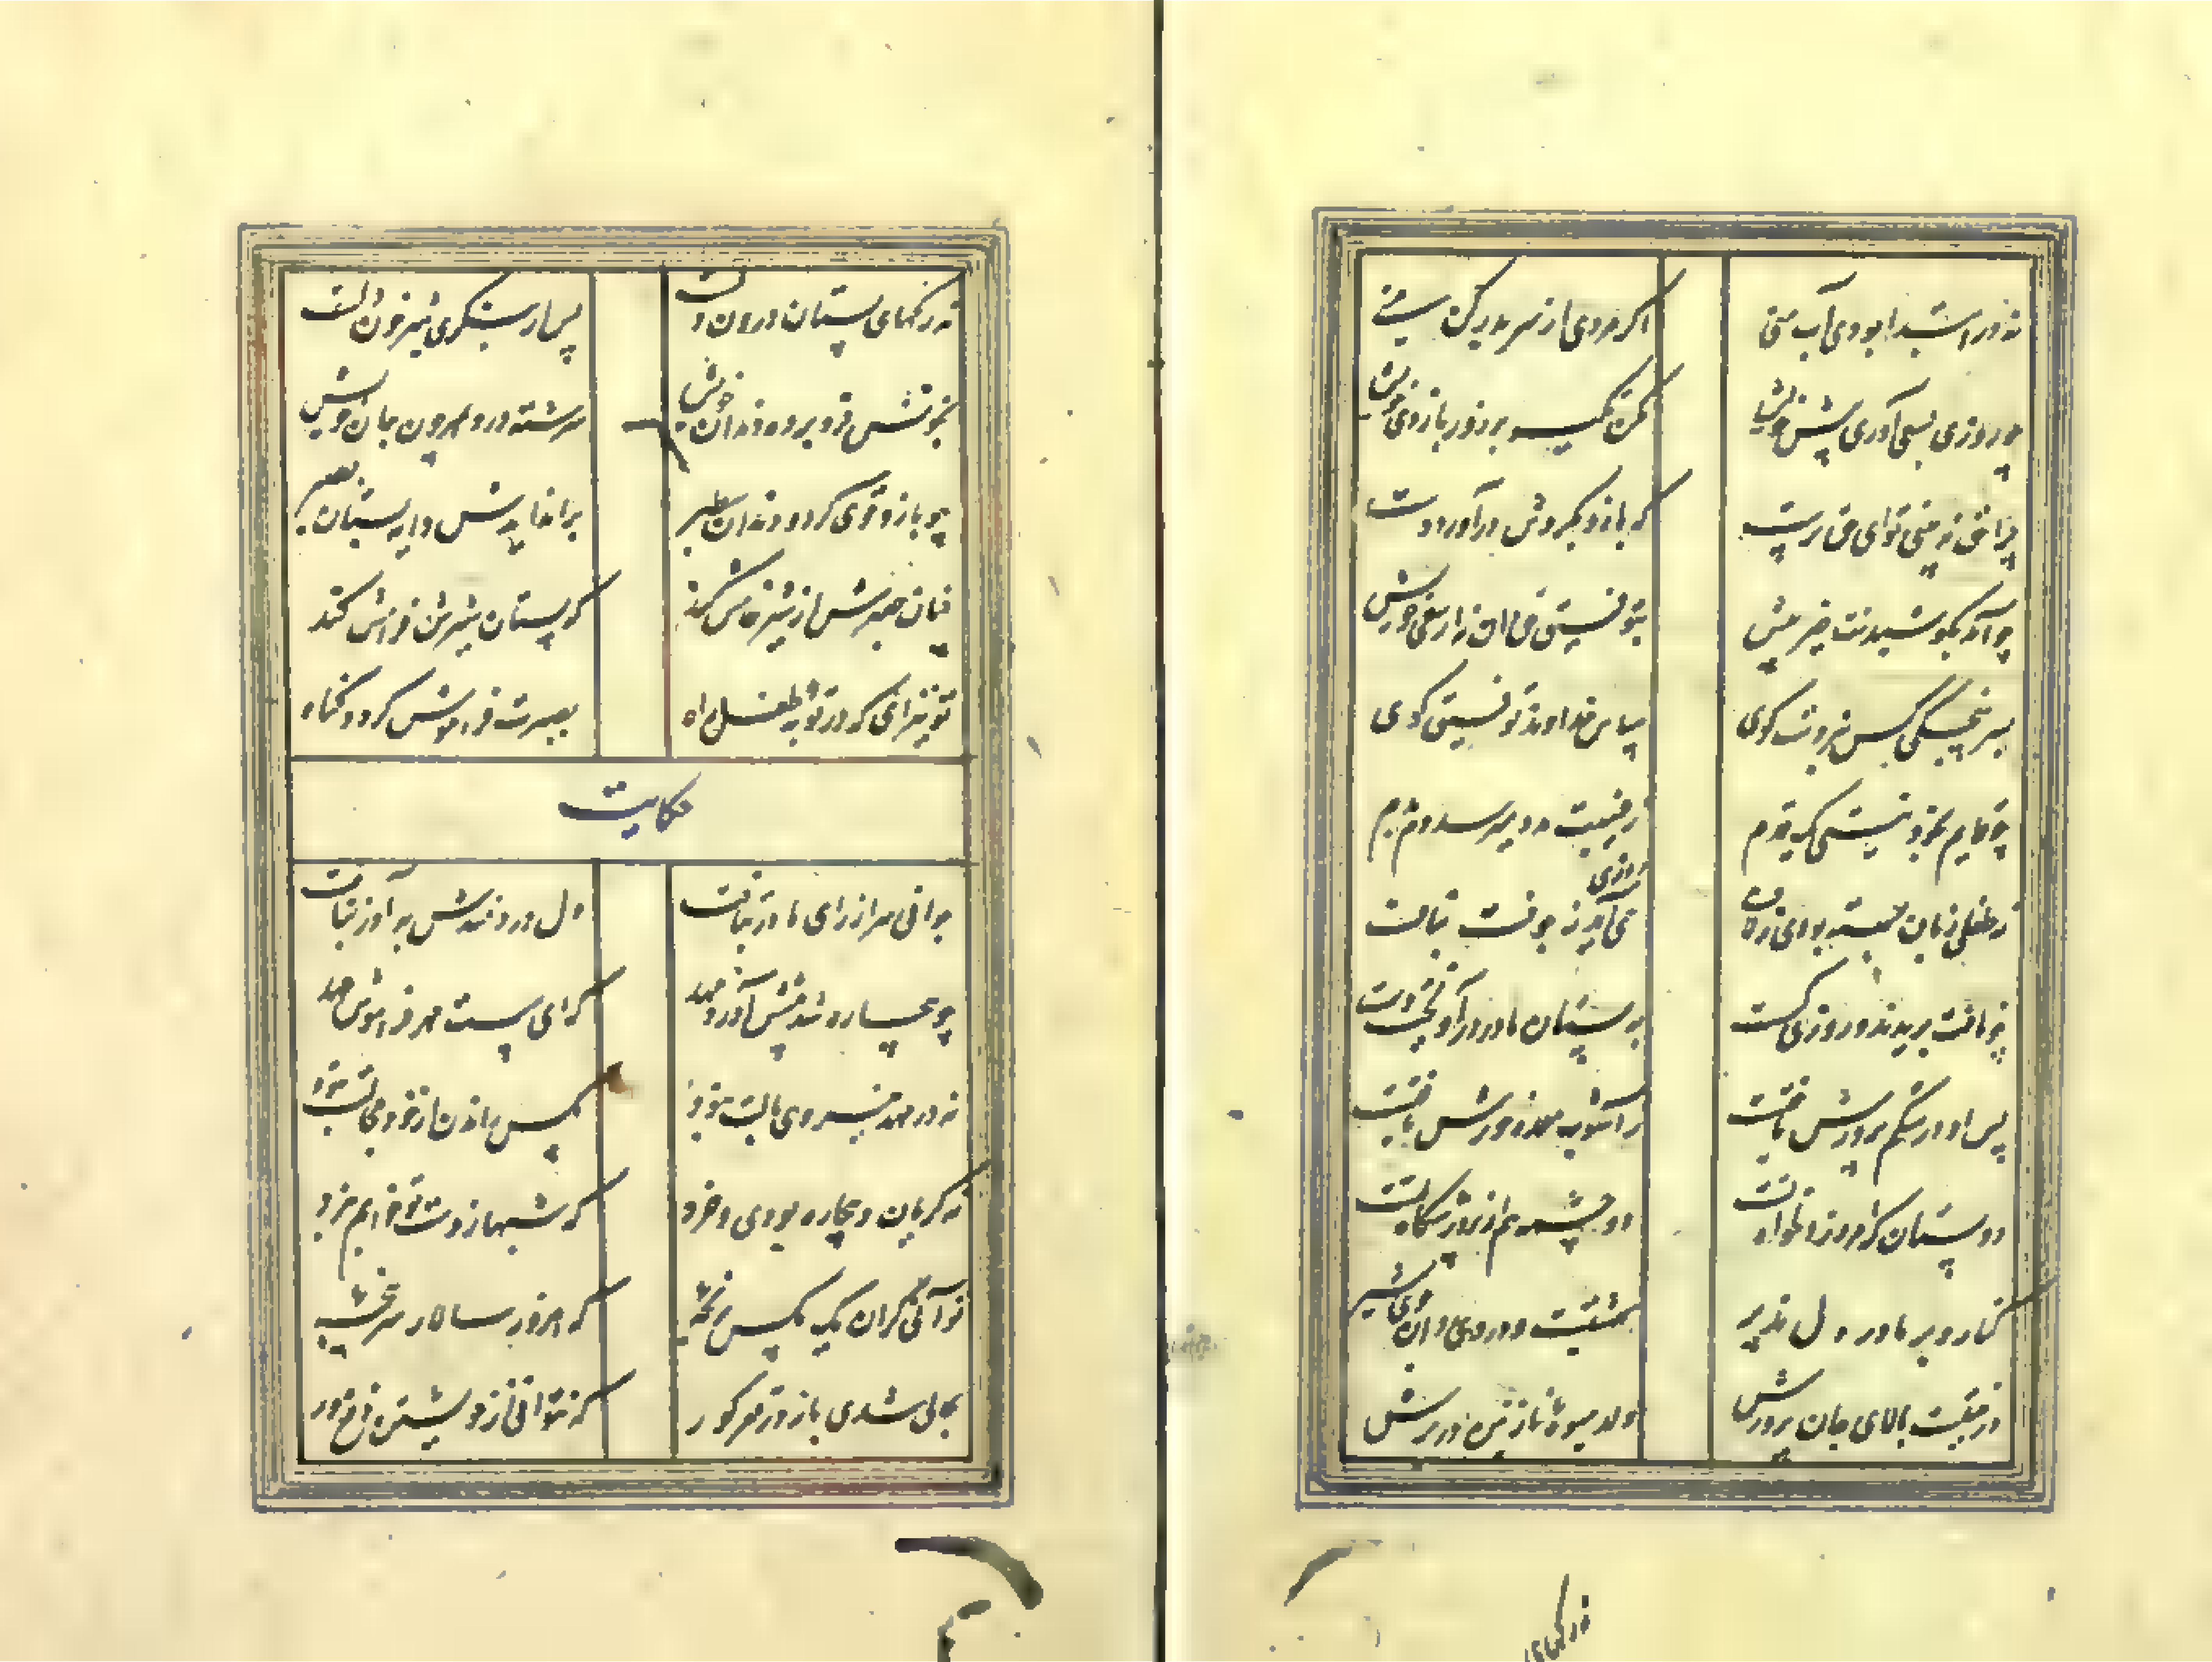 نه در ابتدا بودی آب منی
اگر مردی از سر بدر کن منی
چو روزی بسعی آوری پیش خویش
مکن تکیه بر زور بازوی خویش
چرا حق نمی بینی تو ای خودپرست
که بازو بگردش درآورد دست
چو آید بکوشیدنت خیر پیش
بتوفیق حق دان نه از سعی خویش
بسرپنجگی کس نبردست کوی
سپاس خداوند توفیق کوی
تو قایم بخود نیستی یک قدم
ز غیبت مدد میرسد دم بدم
نه طفلی زبان بسته بودی ز لاف
همی آمدت روزی بجوفت ز ناف
چو نافت بریدند و روزی کسست
به پستان مادر درآویخت دست
پس او در شکم پرورش یافتست
ز انبوب معده خورش یافتست
دو پستان که امروز دلخواه تست
دو چشمه هم از پرورشگاه تست
کنار و بر مادر دلپذیر
بهشتست و در وی دو جوی شیر
درختیست بالای جان پرورش
ولد میوه نازنین در برش
نه رگهای پستان درون دلست
پس ار بنگری شیر خون دلست
بخونش فرو برده دندان چو نیش
سرشته درو مهر چون جان خویش
چو بازو قوی کرد و دندان ستبر
براندایدش دایه پستان بصبر
چنان صبرش از شیر خامش کند
که پستان شیرین فرامش کند
تو نیز ای که در توبه طفل راه
بصبرت فراموش کردد کناه
حکایت
جوانی سر از رای مادر بتافت
دل دردمندش به آذر بتافت
چو بیچاره شد پیشش آورد مهد
که ای سست مهر فراموش عهد
نه در مهد نیروی حالت نبود
مکس راندن از خود مجالت نبود
نه کریان و بیچاره بودی و خرد
که شبها ز دست تو خوابم نبرد
تو آنی کزان یک مکس رنجه
که امروز سالار سرپنجه
بحالی شوی باز در قعر کور
که نتوانی از خویشتن دفع مور
نه رکهای